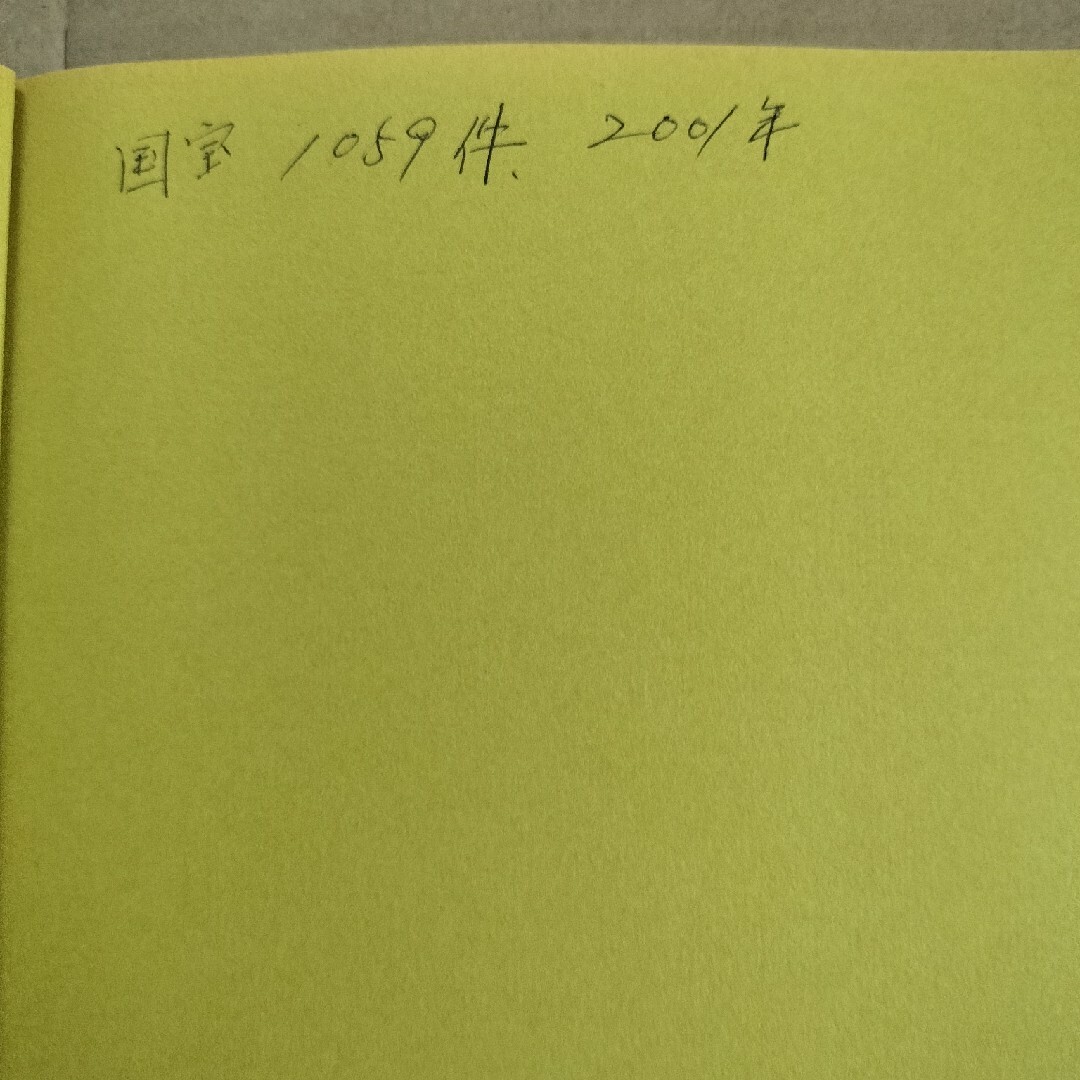 国宝 1059件、 2001年